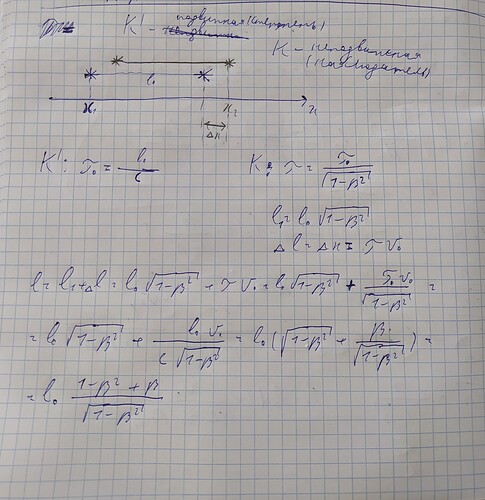 K' - подвижная (
K - неподвижная
(наблюдатель)
l₀
x₁ x₂ x
Δx
K': τ₀ = l₀/c K: τ = τ₀/√(1-β²)
l₁ = l₀ √(1-β²)
Δl = Δx = τ v₀
l = l₁ + Δl = l₀ √(1-β²) + τ v₀ = l₀ √(1-β²) + τ₀ v₀/√(1-β²) =
= l₀ √(1-β²) + l₀ v₀/(c √(1-β²)) = l₀ (√(1-β²) + β/√(1-β²)) =
= l₀ (1-β²+β)/√(1-β²)